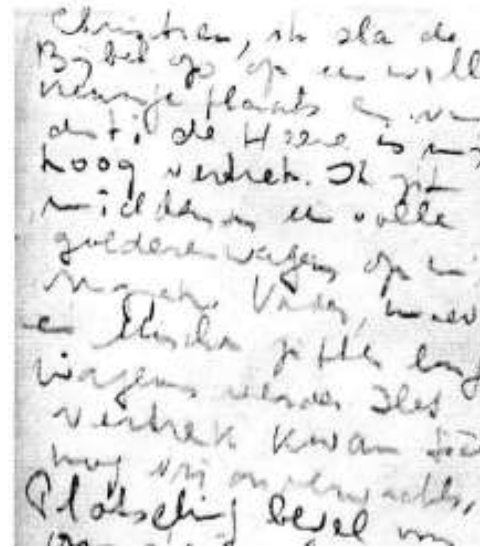 Christien, ik sla de
Bijbel op op een will
keurige plaats en vin
dit: de Heere is mij
hoog vertrek. Ik zit
midden in een volle
goederenwagen op mi
Vader, moed
en Mischa zitten enk
wagens verder. Het
vertrek kwam toc
nog vrij onverwachts,
Plotseling bevel voo